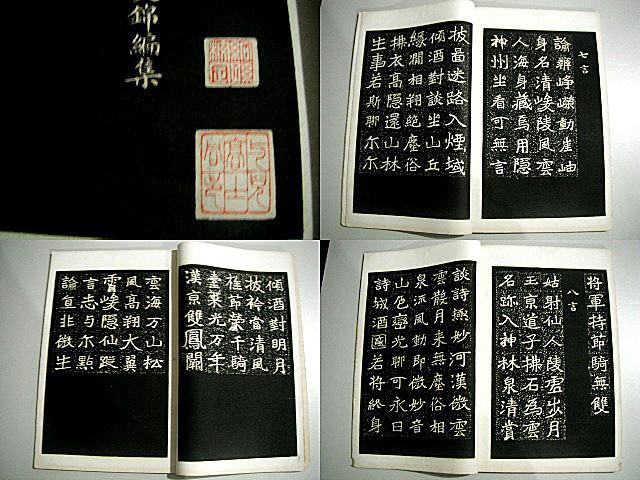 錦編集
七言
論辯崢嶸動崖岫
身名清峻陵風雲
人海身藏焉用隱
神州坐看可無言
披啚迷路入煙域
傾酒對談坐山丘
緣㵎相翔絕塵俗
拂衣高隱還山林
生事若斯聊尔尔
傾酒對明月
披衿當清風
椎節榮千騎
臺萊光万年
漢京雙鳳闕
雲海万山松
風高翔大翼
霄峻隱仙蹤
言志与尔點
論直北徵生
將軍持節騎無雙
八言
姑射仙人陵雲出月
王京道子拂石為雲
名跡入神林泉清賞
談詩興妙河漢微雲
雲影月來無塵俗相
泉流風動即微妙音
山色巒光聊可永日
詩城酒國若將終身